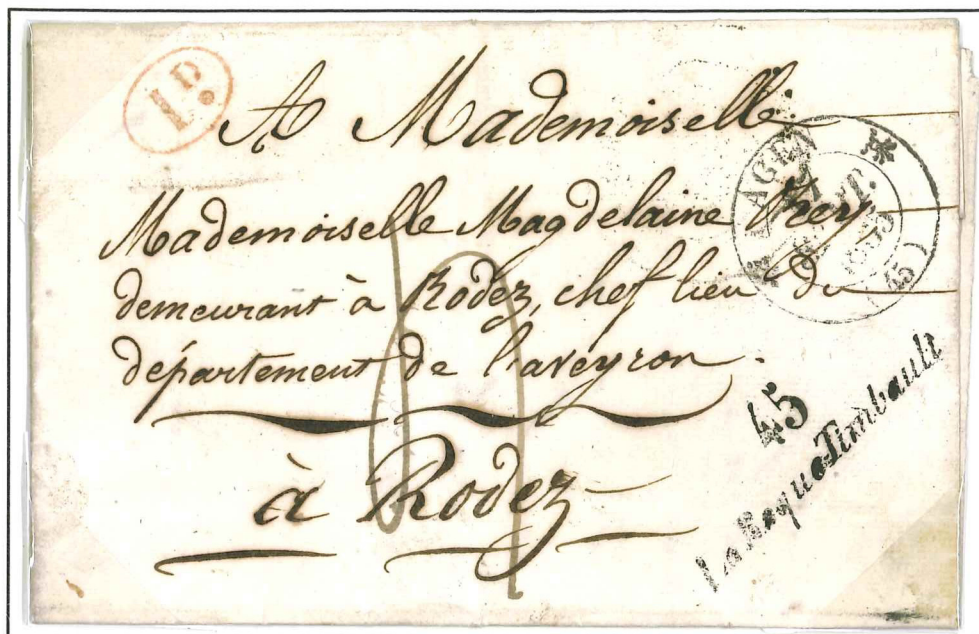 1D.
A Mademoiselle
Mademoiselle Magdelaine
demeurant à Rodez, chef lieu du
département de l'aveyron.
à Rodez
AGEN
SEPT.
(45)
45
LaRoqueTimbault